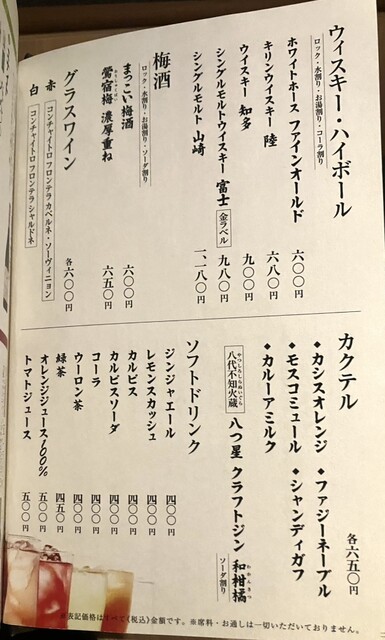 ウィスキー・ハイボール
ロック・水割り・お湯割り・コーラ割り
ホワイトホース ファインオールド 六〇〇円
キリンウィスキー 陸 六八〇円
ウイスキー 知多 九〇〇円
シングルモルトウイスキー 富士 金ラベル 九八〇円
シングルモルト 山崎 一、一八〇円
梅酒
ロック・水割り・お湯割り・ソーダ割り
まっこい梅酒 六〇〇円
鶯宿梅 濃厚重ね 六五〇円
グラスワイン 各六〇〇円
赤 コンチャイトロ フロンテラ カベルネ・ソーヴィニョン
白 コンチャイトロ フロンテラ シャルドネ
カクテル 各六五〇円
◆カシスオレンジ ◆ファジーネーブル
◆モスコミュール ◆シャンディガフ
◆カルーアミルク
八代不知火蔵 八つ星 クラフトジン 和柑橘 ソーダ割り
ソフトドリンク
ジンジャエール 四〇〇円
レモンスカッシュ 四〇〇円
カルピス 四〇〇円
カルピスソーダ 四〇〇円
コーラ 四〇〇円
ウーロン茶 四〇〇円
緑茶 四五〇円
オレンジジュース100% 五〇〇円
トマトジュース 五〇〇円
※表記価格はすべて《税込》金額です。※席料・お通しは一切いただいておりません。